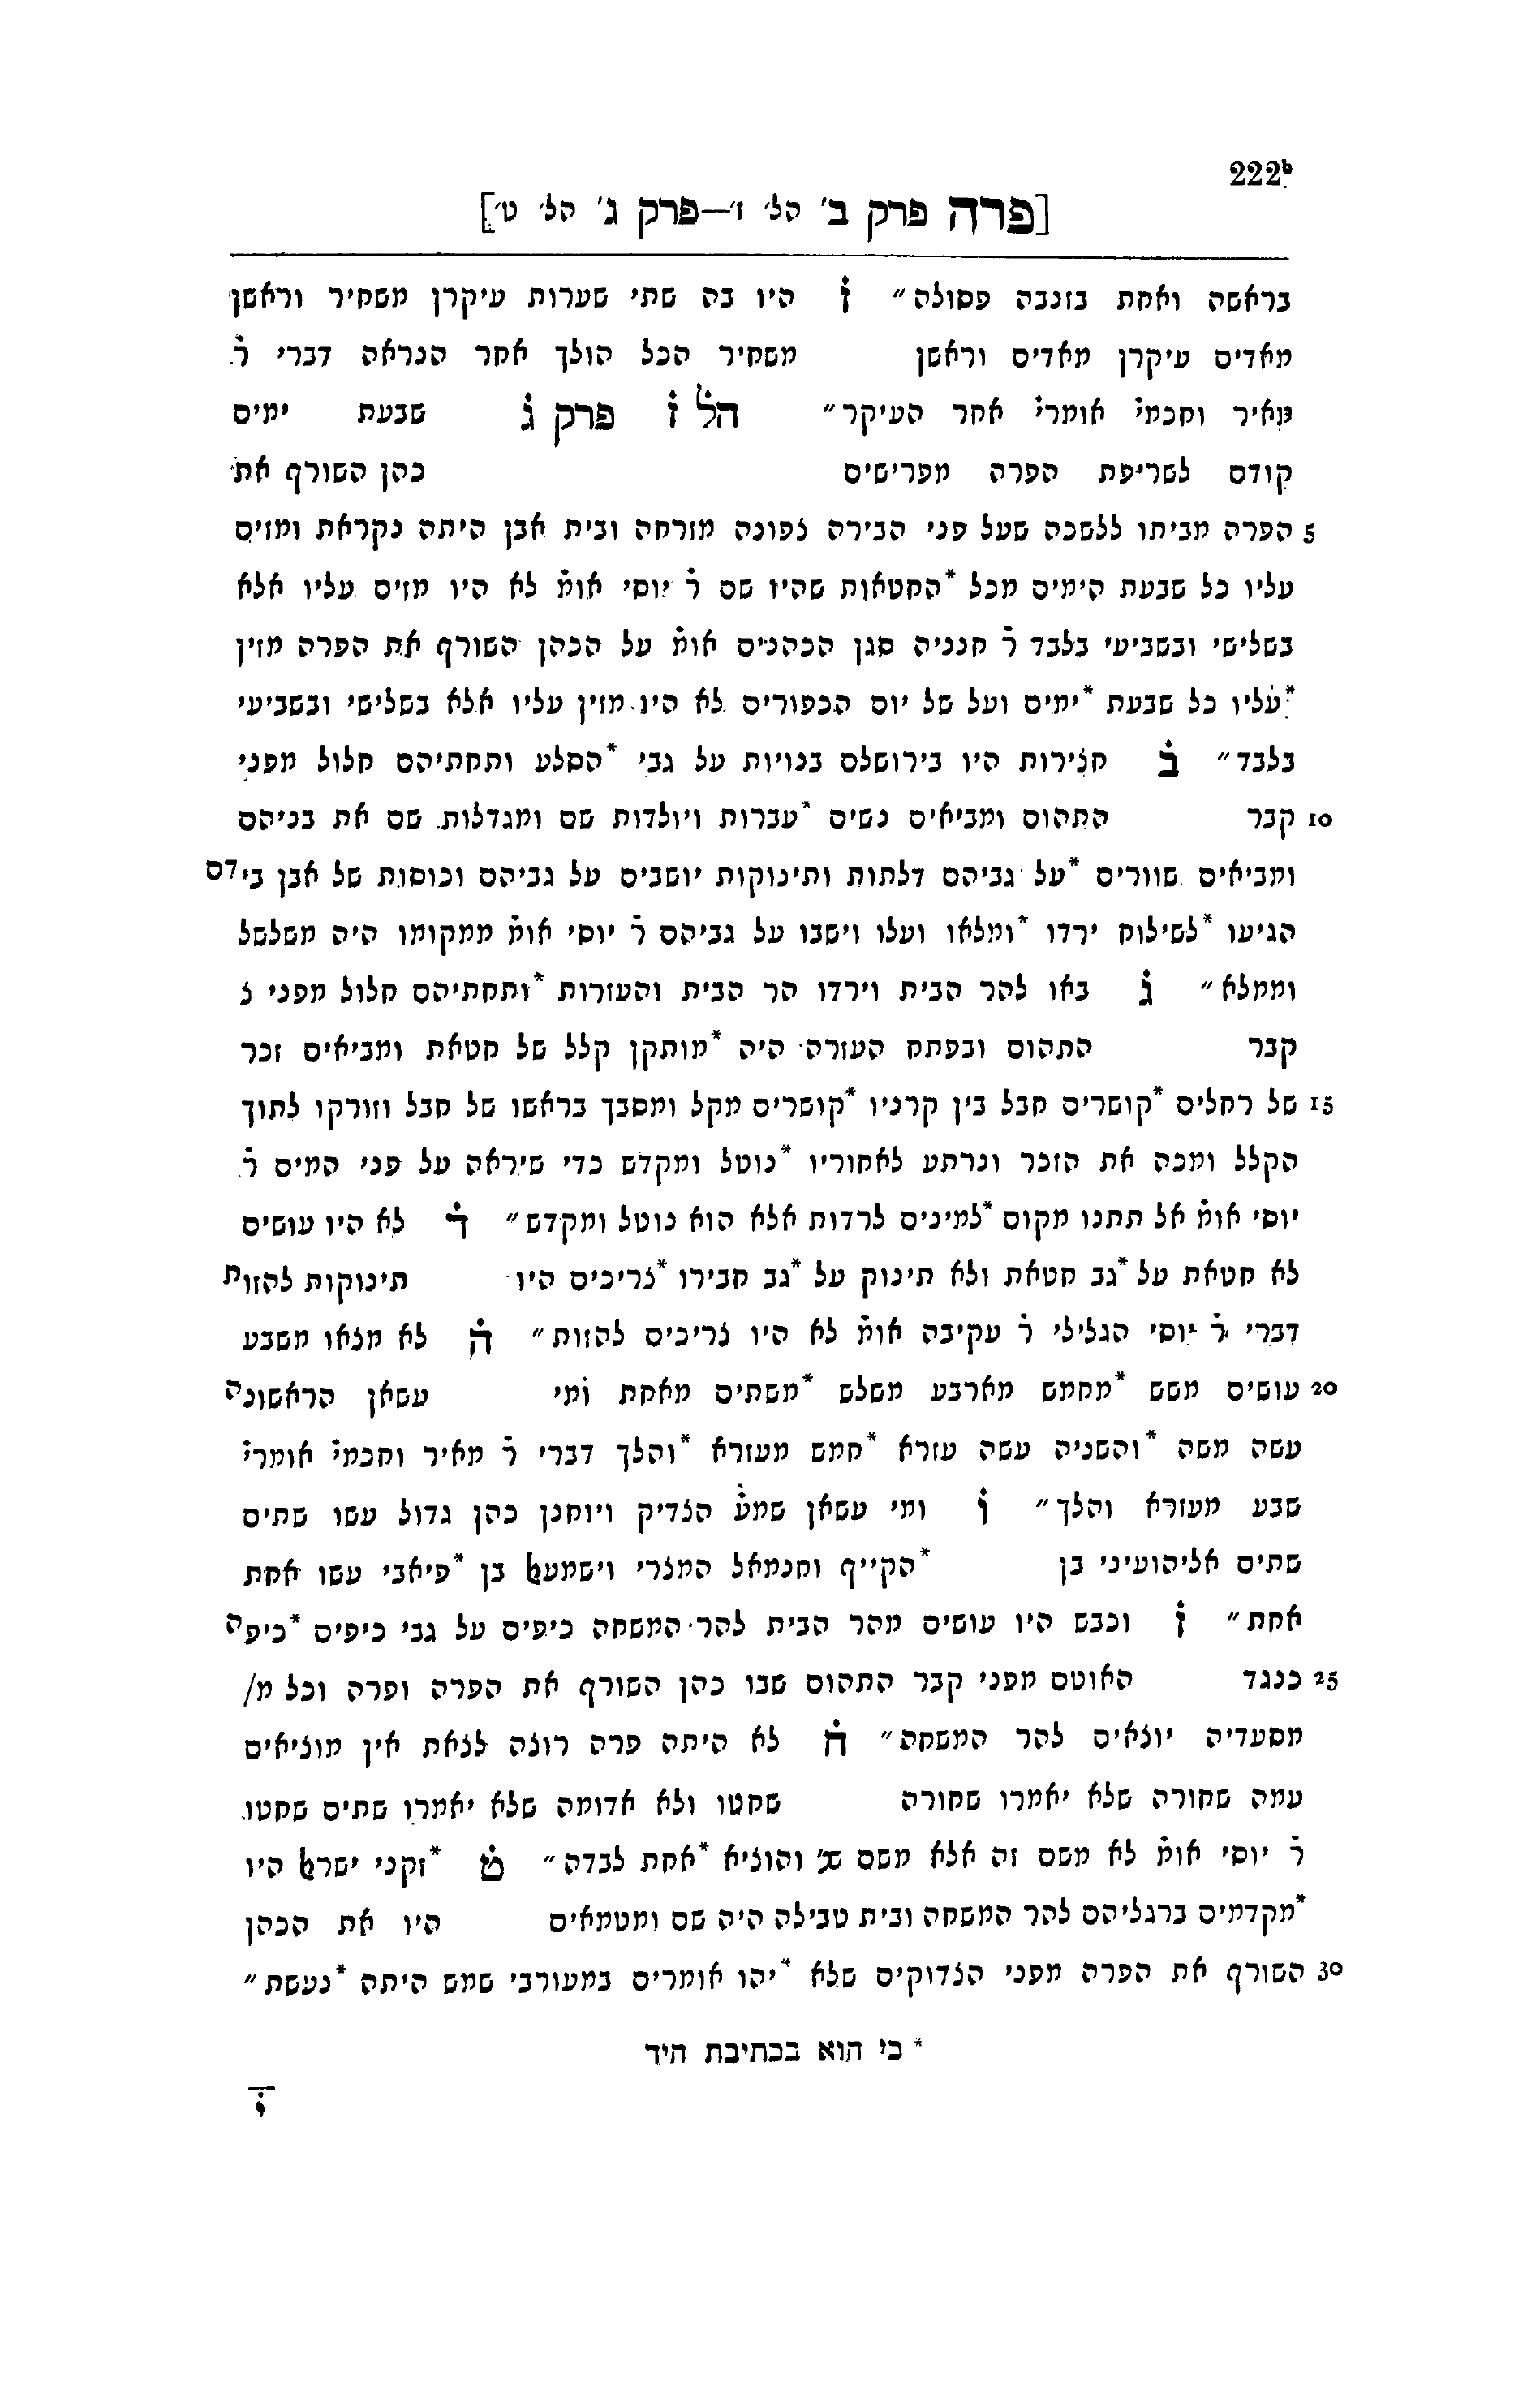 222b
[פרה פרק ב' הל' ז'—פרק ג' הל' ט']
בראשה ואחת בזנבה פסולה״ ז היו בה שתי שערות עיקרן משחיר וראשן
מאדים עיקרן מאדים וראשן משחיר הכל הולך אחר הנראה דברי ר̇
מאיר וחכמי̇ אומרי̇ אחר העיקר״ הל̇ ז̇ פרק ג̇ שבעת ימים
קודם לשריפת הפרה מפרישים כהן השורף את
5 הפרה מביתו ללשכה שעל פני הבירה צפונה מזרחה ובית אבן היתה נקראת ומזים
עליו כל שבעת הימים מכל *החטאות שהיו שם ר̇ יוסי אומ̇ לא היו מזים עליו אלא
בשלישי ובשביעי בלבד ר̇ חנניה סגן הכהנים אומ̇ על הכהן השורף את הפרה מזין
*עליו כל שבעת *ימים ועל של יום הכפורים לא היו מזין עליו אלא בשלישי ובשביעי
בלבד״ ב̇ חצירות היו בירושלם בנויות על גבי *הסלע ותחתיהם חלול מפני
10 קבר התהום ומביאים נשים *עברות ויולדות שם ומגדלות שם את בניהם
ומביאים שוורים *על גביהם דלתות ותינוקות יושבים על גביהם וכוסות של אבן בידם
הגיעו *לשילוח ירדו *ומלאו ועלו וישבו על גביהם ר̇ יוסי אומ̇ ממקומו היה משלשל
וממלא״ ג̇ באו להר הבית וירדו הר הבית והעזרות *ותחתיהם חלול מפני
קבר התהום ובפתח העזרה היה *מותקן קלל של חטאת ומביאים זכר
15 של רחלים *קושרים חבל בין קרניו *קושרים מקל ומסבך בראשו של חבל וזורקו לתוך
הקלל ומכה את הזכר ונרתע לאחוריו *נוטל ומקדש כדי שיראה על פני המים ר̇
יוסי אומ̇ אל תתנו מקום *למינים לרדות אלא הוא נוטל ומקדש״ ד̇ לא היו עושים
לא חטאת על *גב חטאת ולא תינוק על *גב חבירו *צריכים היו תינוקות להזות
דברי ר̇ יוסי הגלילי ר̇ עקיבה אומ̇ לא היו צריכים להזות״ ה̇ לא מצאו משבע
20 עושים משש *מחמש מארבע משלש *משתים מאחת ומי עשאן הראשונה
עשה משה *והשניה עשה עזרא *חמש מעזרא *והלך דברי ר̇ מאיר וחכמי̇ אומרי̇
שבע מעזרא והלך״ ו̇ ומי עשאן שמע̇ הצדיק ויוחנן כהן גדול עשו שתים
שתים אליהועיני בן *הקייף וחנמאל המצרי וישמעאל בן *פיאבי עשו אחת
אחת״ ז̇ וכבש היו עושים מהר הבית להר המשחה כיפים על גבי כיפים *כיפה
25 כנגד האוטם מפני קבר התהום שבו כהן השורף את הפרה ופרה וכל מ/
מסעדיה יוצאים להר המשחה״ ח̇ לא היתה פרה רוצה לצאת אין מוציאים
עמה שחורה שלא יאמרו שחורה שחטו ולא אדומה שלא יאמרו שתים שחטו
ר̇ יוסי אומ̇ לא משם זה אלא משם שנ׳ והוציא *אחת לבדה״ ט̇ *זקני ישראל היו
*מקדמים ברגליהם להר המשחה ובית טבילה היה שם ומטמאים היו את הכהן
30 השורף את הפרה מפני הצדוקים שלא *יהו אומרים במעורבי שמש היתה *נעשת״
* כי הוא בכתיבת היד